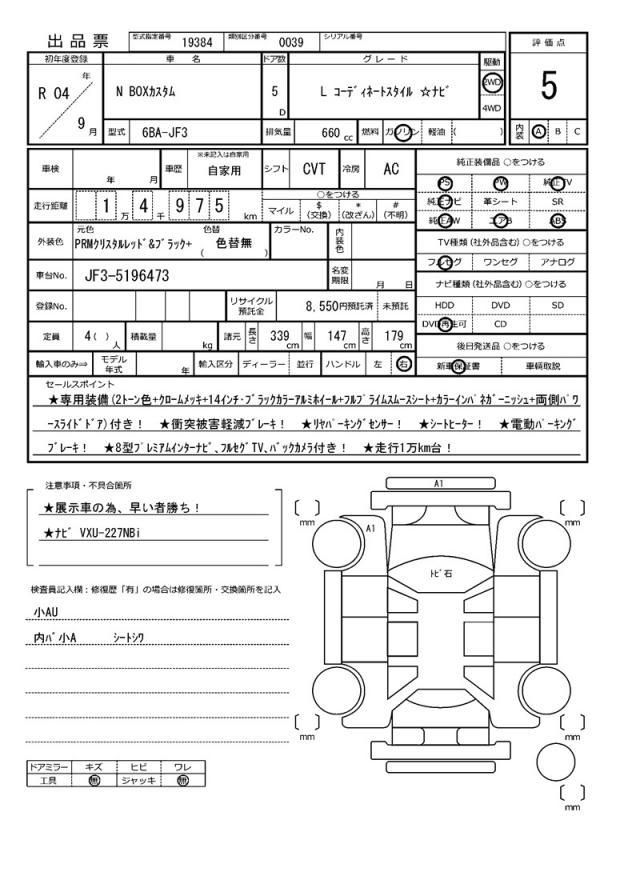 出品票
型式指定番号 19384 類別区分番号 0039 シリアル番号
初年度登録 車名 ドア数 グレード 駆動 評価点
R 04 年 9 月 N BOXカスタム 5 D L コーディネートスタイル ☆ナビ 2WD 4WD 5
型式 6BA-JF3 排気量 660 cc 燃料 ガソリン 軽油 ( ) 内装 A B C
車検 年 月 車歴 ※未記入は自家用 自家用 シフト CVT 冷房 AC 純正装備品 ○をつける
PS PW 純正TV
走行距離 1 万 4 千 9 7 5 km ○をつける
マイル $ (交換) * (改ざん) # (不明)
純正ナビ 革シート SR
純正AW エアB ABS
外装色 元色 PRMクリスタルレッド&ブラック+ 色替 ( 色替無 ) カラーNo. 内装色
TV種類 (社外品含む) ○をつける
フルセグ ワンセグ アナログ
車台No. JF3-5196473 名変期限 月 日
ナビ種類 (社外品含む) ○をつける
登録No. リサイクル預託金 8,550円預託済 未預託
HDD DVD SD
DVD再生可 CD
定員 4( ) 人 積載量 kg 諸元 長さ 339 cm 幅 147 cm 高さ 179 cm
後日発送品 ○をつける
輸入車のみ⇒ モデル年式 年 輸入区分 ディーラー 並行 ハンドル 左 右
新車保証書 車輌取説
セールスポイント
★専用装備(2トーン色+クロームメッキ+14インチ・ブラックカラーアルミホイール+フルプライムスムースシート+カラーインパネガーニッシュ+両側パワ
ースライドドア)付き! ★衝突被害軽減ブレーキ! ★リヤパーキングセンサー! ★シートヒーター! ★電動パーキング
ブレーキ! ★8型プレミアムインターナビ、フルセグTV、バックカメラ付き! ★走行1万km台!
注意事項・不具合箇所
★展示車の為、早い者勝ち!
★ナビ VXU-227NBi
検査員記入欄:修復歴「有」の場合は修復箇所・交換箇所を記入
小AU
内バ小A シートシワ
A1
mm
mm
A1
トビ石
mm
mm
mm
ドアミラー キズ ヒビ ワレ
工具 無 ジャッキ 無